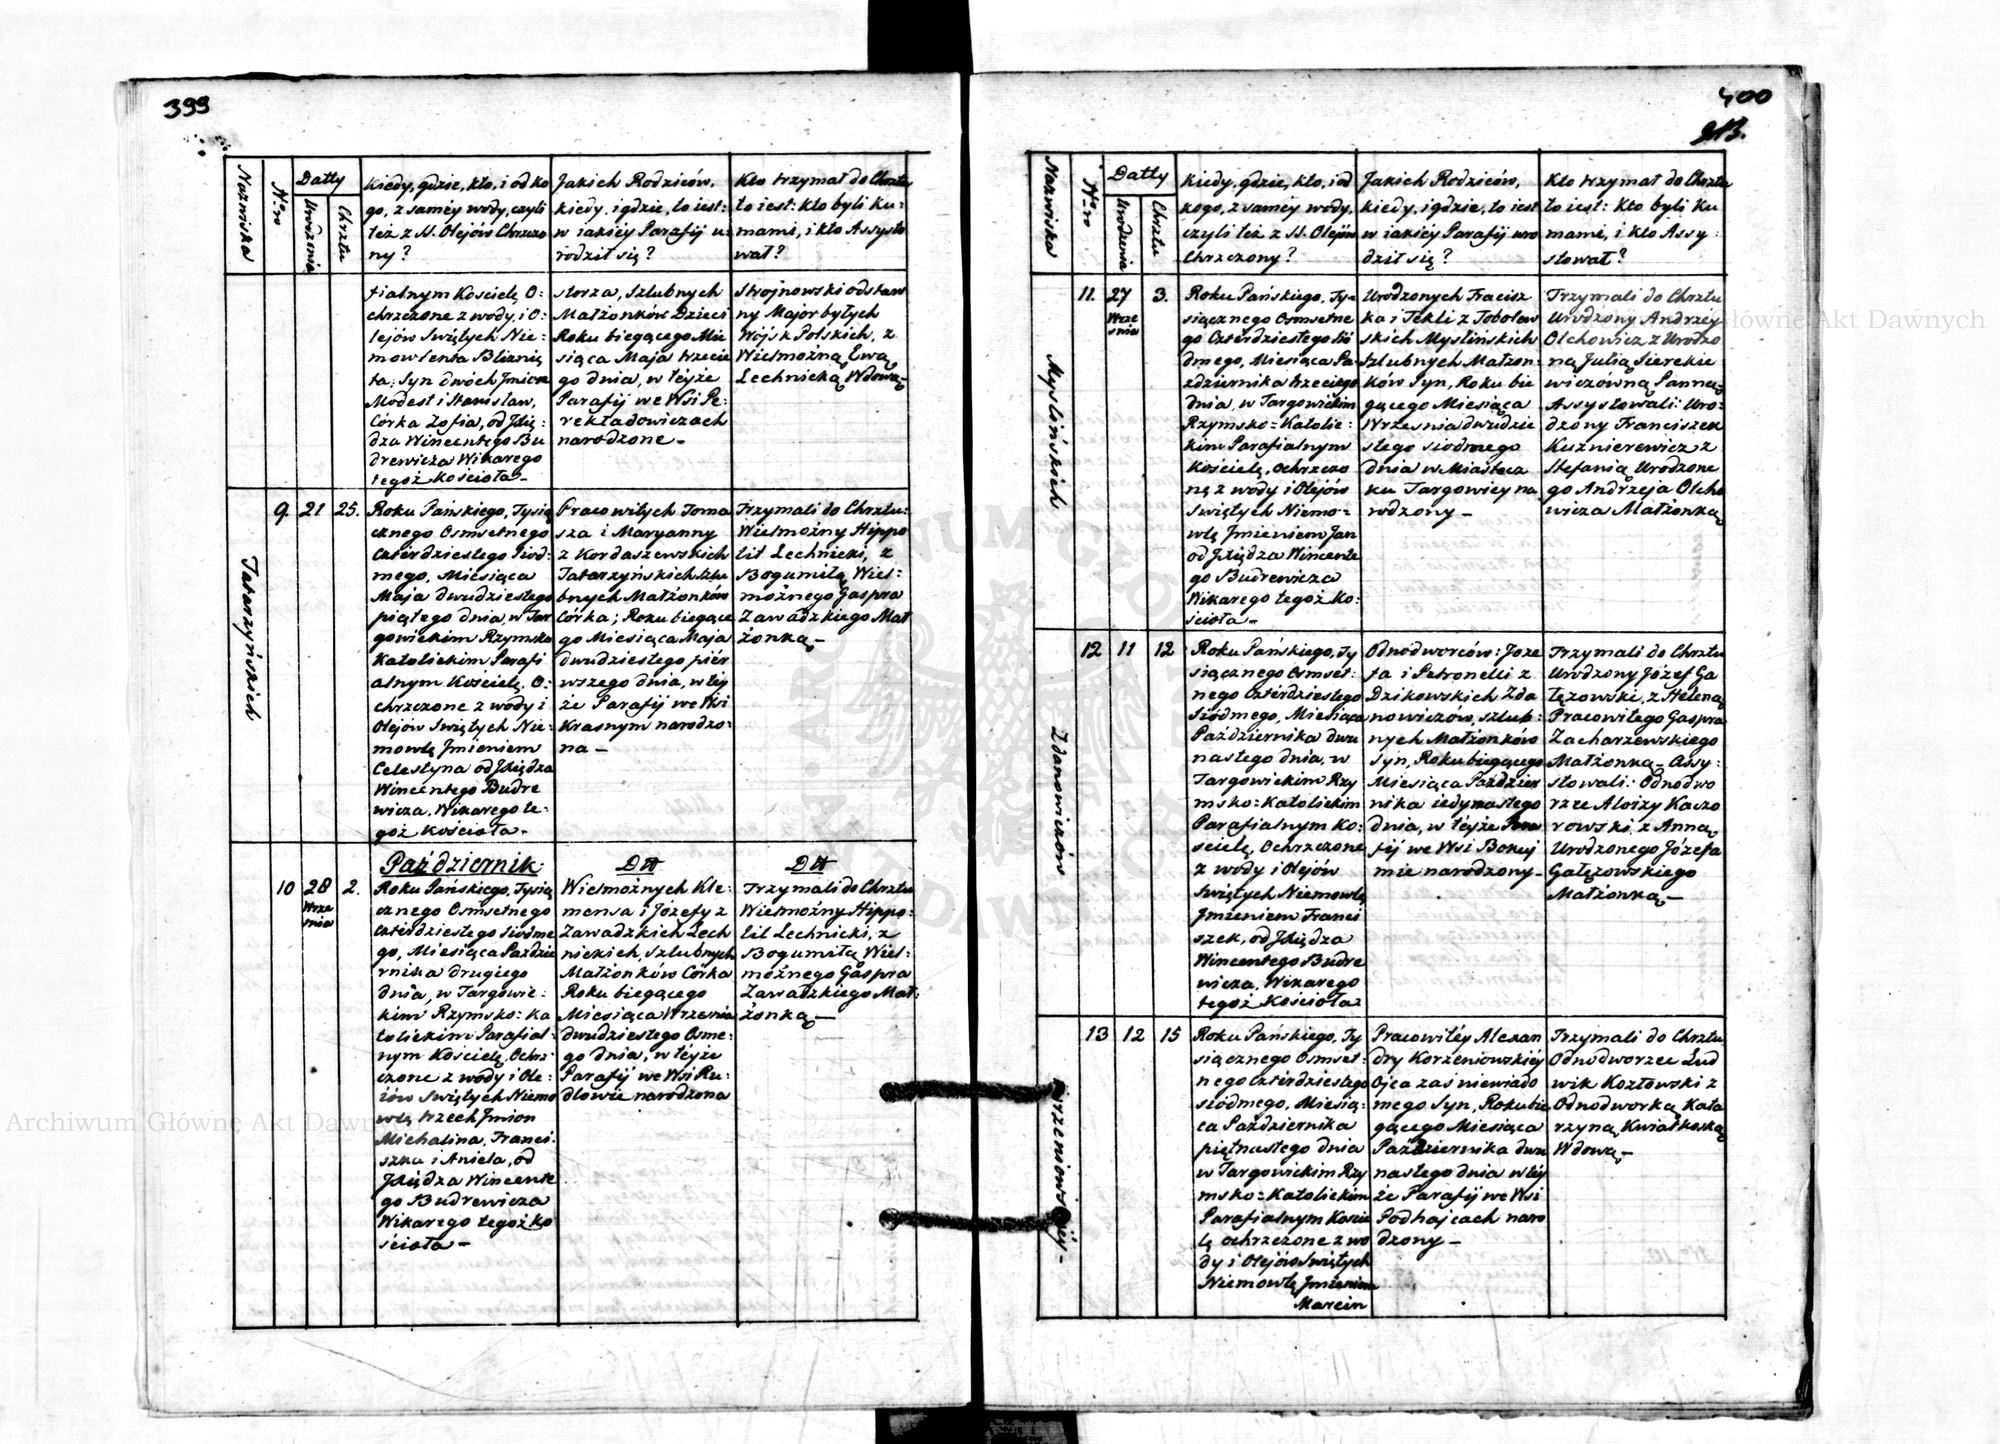 399
Nazwiska
Nro
Datty
Urodzenia
Chrztu
Kiedy, gdzie, kto, i od ko
go, z saméy wody, czyli
też z SS. Olejów Chrzczo
ny?
Jakich Rodziców,
kiedy, i gdzie, to iest:
w iakiéy Parafij u:
rodził się?
Kto trzymał do Chrztu
to iest: kto byli Ku:
mami, i kto Assysto
wał?
fialnym Kościelę, O:
chrzczone z wody, i O:
lejów Swiętych Nie:
mowlenta Bliznię
ta; Syn dwóch Jmion
Modest i Stanisław,
Córka Zofia, od Xię:
dza Wincentego Bu
drewicza Wikarego
tegoż Kościoła -
storza, Szlubnych
Małżonków Dzieci
Roku biegącego Mie
siąca Maja trzecie
go dnia, w téyże
Parafij we Wsi Pe:
rekładowiczach
narodzone -
Stroynowski odstaw
ny Major byłych
Wóysk Polskich, z
Wielmożną Ewą
Lechnicką Wdową -
Tatarzyńskich
9. 21 25.
Roku Pańskiego, Tysią
cznego Osmsetnego
czterdziestego Siód:
mego, Miesiąca
Maja dwudziestego
piątego dnia, w Tar
gowickim Rzymsko
Katolickim Parafi
alnym Kościelę, O:
chrzczone z wody i
Olejów Swiętych Nie:
mowlę Jmieniem
Celestyna od Xiędza
Wincentego Budre
wicza, Wikarego te:
goż Kościoła -
Pracowitych Toma
sza i Maryanny
z Kordaszewskich
Tatarzyńskich Szlu
bnych Małżonków
Córka; Roku biegące
go Miesiąca Maja
dwudziestego piér
wszego dnia, w téy
że Parafij we Wsi
Krasnym narodzo:
na -
Trzymali do Chrztu:
Wielmożny Hippo
lit Lechnicki, z
Bogumiłą, Wiel:
możnego Gaspra
Zawadzkiego Mał
żonką -
Październik
Dtt
Dtt
10 28 2.
Wrze
śnia
Roku Pańskiego, Tysią
cznego Osmsetnego
czterdziestego siódme
go, Miesiąca Paździe
rnika drugiego
dnia, w Targowic:
kim Rzymsko: Ka
tolickim Parafial:
nym Kościelę, Ochrz:
czone z wody i Ole:
iów Swiętych Niemo
wlę, trzech Jmion
Michalina, Franci:
szka i Aniela, od
Xiędza Wincente
go Budrewicza
Wikarego tegoż Ko
ścioła -
Wielmożnych Kle:
mensa i Józefy z
Zawadzkich Lech
nickich, Szlubnych
Małżonków Córka
Roku biegącego
Miesiąca Wrzesnia
dwudziestego Osme:
go dnia, w téyże
Parafij we Wsi Ru:
dłowie narodzona
Trzymali do Chrztu
Wielmożny Hippo:
lit Lechnicki, z
Bogumiłą Wiel:
możnego Gaspra
Zawadzkiego Mał:
żonką -
400
Nazwiska
Nro
Datty
Urodzenia
Chrztu
Kiedy, gdzie, kto, i od
kogo, z saméy wody,
czyli też z SS. Olejów
Chrzczony?
Jakich Rodziców,
kiedy, i gdzie, to iest
w iakiéy Parafij uro
dził się?
Kto trzymał do Chrztu
to iest: Kto byli Ku
mami, i kto Assy:
stował?
Myslińskich
11. 27 3.
Wrze
śnia
Roku Pańskiego, Ty:
siącznego Osmsetne
go Czterdziestego Sió
dmego, Miesiąca Pa
ździernika trzeciego
dnia, w Targowickim
Rzymsko=Katolic:
kim Parafialnym
Kościelę, Ochrzczo
nę z wody i Olejów
Swiętych Niemo:
wlę Jmieniem Jan
od Xiędza Wincente
go Budrewicza
Wikarego tegoż Ko:
ścioła -
Urodzonych Fracisz
ka i Tekli z Tobołew
skich Myslińskich
Szlubnych Małżon:
ków Syn, Roku bie
gącego Miesiąca
Wrzesnia dwudzie
stego siodmego
dnia w Miastecz
ku Targowicy na
rodzony -
Trzymali do Chrztu
Urodzony Andrzey
Olchowicz z Urodzo
ną Julią Sierekie
wiczówną Panną -
Assystowali: Uro:
dzony Franciszek
Kuznierewicz z
Stefanią Urodzone
go Andrzeja Olcho
wicza Małżonką
Zdanowiczów
12 11 12
Roku Pańskiego, Ty
siącznego Osmset:
nego Czterdziestego
Siódmego, Miesiąca
Października dwu
nastego dnia, w
Targowickim Rzy
msko: Katolickim
Parafialnym Ko:
ścielę, Ochrzczone
z wody i Olejów
Swiętych Niemowlę
Jmieniem Franci
szek, od Xiędza
Wincentego Budre
wicza, Wikarego
tegoż Kościoła -
Odnodworców: Joze
fa i Petronelli z
Dzikowskich Zda
nowiczow, szlub:
nych Małżonków
Syn, Roku biegącego
Miesiąca Paździer
nika iedynastego
dnia, w téyże Para
fij we Wsi Boruj
mie narodzony -
Trzymali do Chrztu
Urodzony Józef Ga
łęzowski, z Heleną
Pracowitego Gaspra
Zacharzewskiego
Małżonką - Assy:
stowali: Odnodwo
rzec Aloizy Kaczo
rowski, z Anną
Urodzonego Józefa
Gałęzowskiego
Małżonką -
rzeniowskiéy -
13 12 15
Roku Pańskiego, Ty
siącznego Osmset:
nego Czterdziestego
siódmego, Miesią:
ca Października
piętnastego dnia
w Targowickim Rzy
msko=Katolickim
Parafialnym Koście
lę ochrzczone z wo
dy i Olejów Swiętych
Niemowlę Jmieniem
Marcin
Pracowitéy Alexan
dry Korzeniowskiéy
Ojca zaś niewiado
mego Syn, Roku bie
gącego Miesiąca
Października dwu
nastego dnia w téy
że Parafij we Wsi
Podhajcach naro
dzony -
Trzymali do Chrztu
Odnodworzec Lud
wik Kozłowski z
Odnodworką Kata
rzyną Kwiatkoską
Wdową -
Archiwum Główne Akt Dawnych
Główne Akt Dawnych